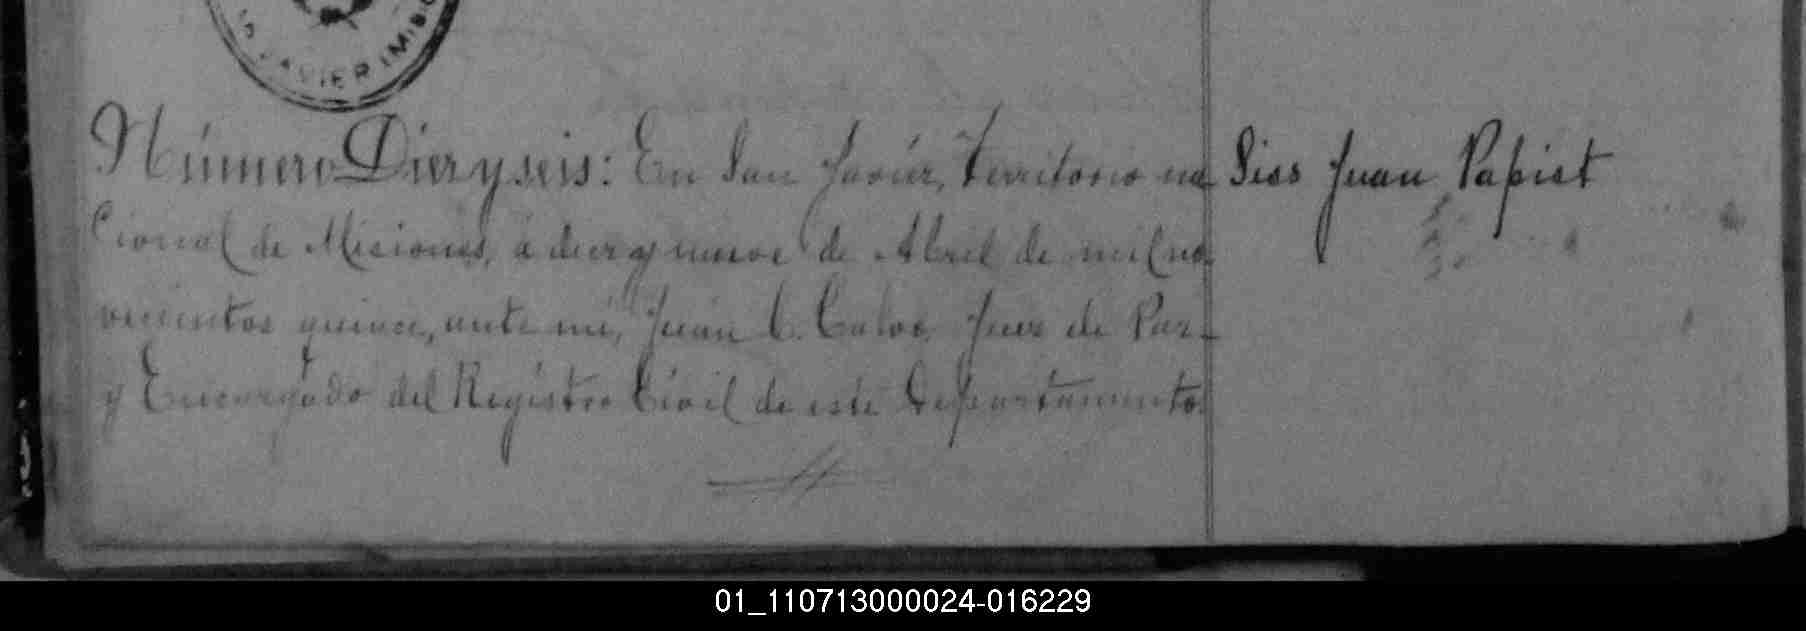 SAN JAVIER (MISIO
Número Diez y seis: En San Javiér, Territorio na Siss Juan Papist
cional de Misiones, á diez y nueve de Abril de mil no-
vecientos quince, ante mi, Juan C. Calvo, Juez de Paz-
y Encargado del Registro Civil de este Departamento
01_110713000024-016229